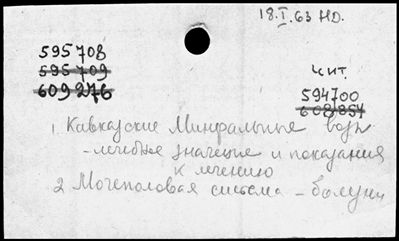 18.I.63 НО.
595708
595709
609276
чит.
594700
608854
1. Кавказские Минральные воды
- лечебное значение и показания
к лечению
2 Мочеполовая система - болезни